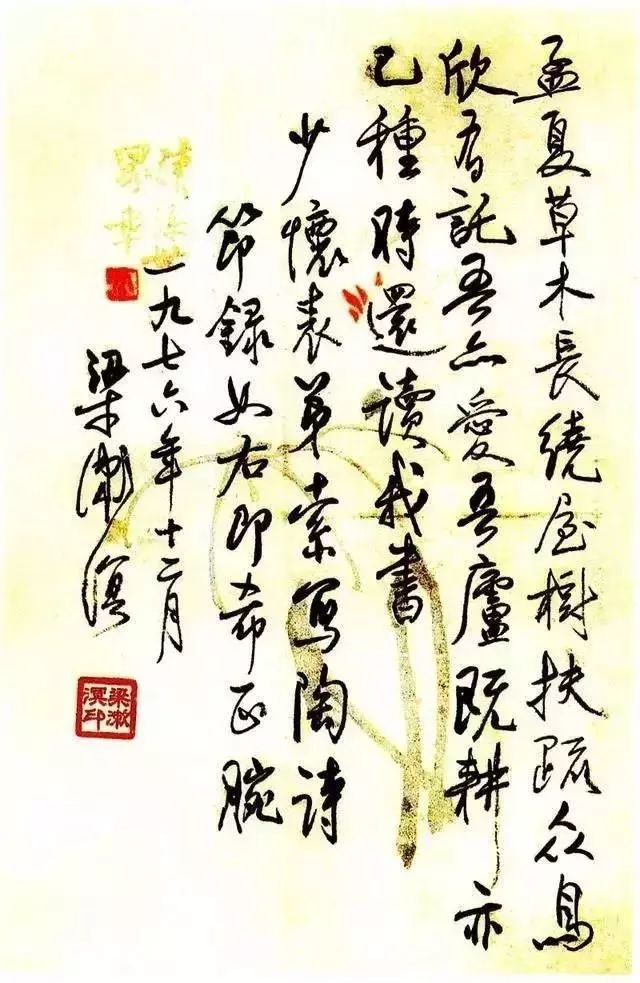 孟夏草木長繞屋樹扶疏众鳥
欣有託吾亦愛吾廬既耕亦
已種時還讀我書
少懷表弟索寫陶詩
節錄如右即希正腕
一九七六年十二月
梁漱溟
梁漱溟印